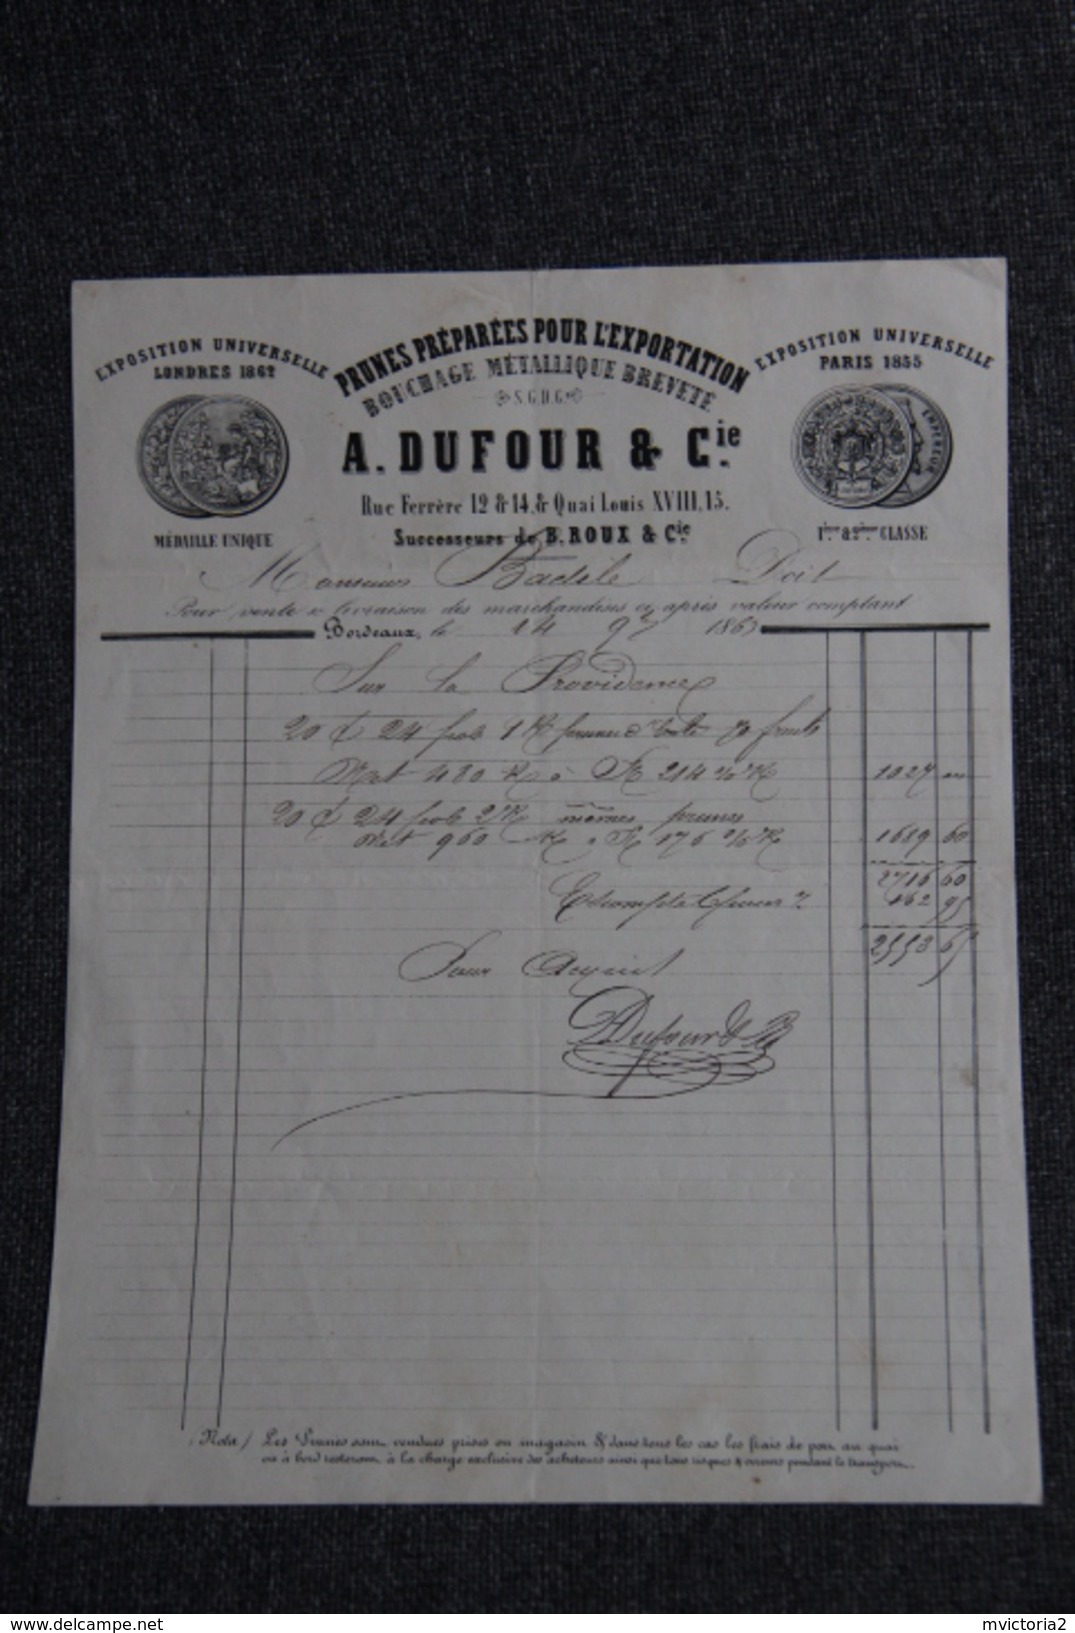 EXPOSITION UNIVERSELLE
LONDRES 1862
MÉDAILLE UNIQUE
PRUNES PRÉPARÉES POUR L'EXPORTATION
BOUCHAGE MÉTALLIQUE BREVETÉ
S.G.D.G.
A. DUFOUR & Cie.
Rue Ferrère 12 & 14, & Quai Louis XVIII, 15.
Successeurs de B. ROUX & Cie.
EXPOSITION UNIVERSELLE
PARIS 1855
EMPEREUR
1ère & 2ème CLASSE
Monsieur Doit
Pour vente & livraison des marchandises ci après valeur comptant
Bordeaux, le 14 9bre 1863
Sur la Providence
20 C 24 1 K 70 fruits
Net 480 K à 214 % K 1027
20 C 24 2 K mêmes prunes
Net 960 K 176 % K 1689 60
2716 60
Escompte 162 95
2553 65
Pour Acquit
A Dufour & Cie
(Nota) Les Prunes sont vendues prises en magasin & dans tous les cas les frais de port au quai
ou à bord resteront à la charge exclusive des acheteurs ainsi que tous risques & pendant le transport.
delcampe.net
mvictoria2